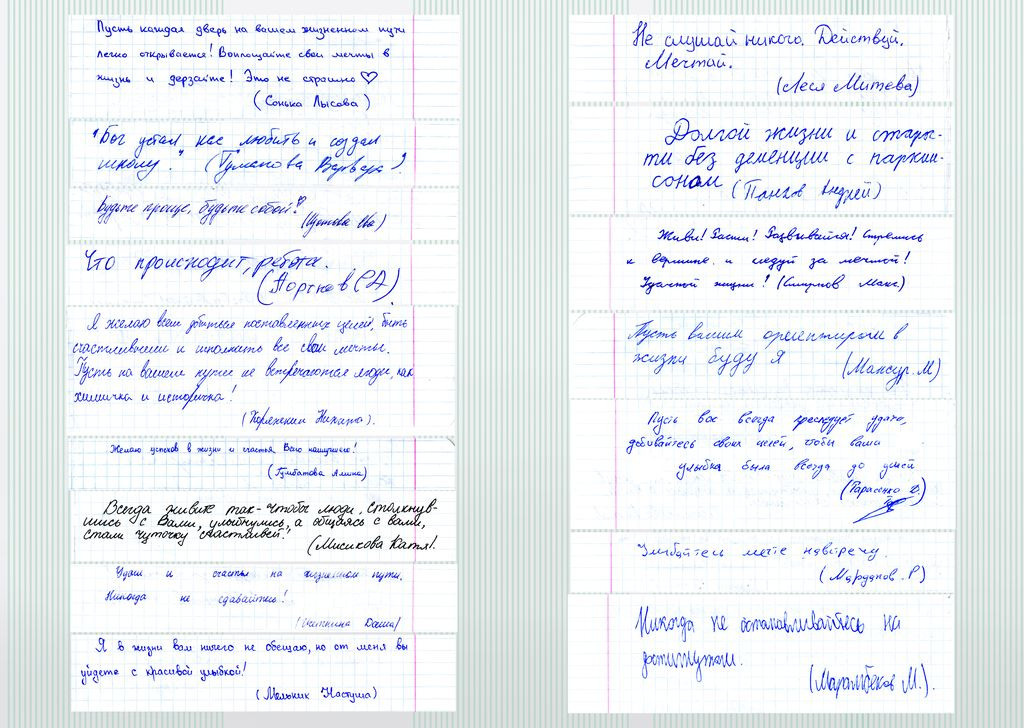 Пусть каждая дверь на вашем жизненном пути
легко открывается! Воплощайте свои мечты в
жизнь и дерзайте! Это не страшно ♡
(Сонька Лысова)
"Бог устал нас любить и создал
школу". (Туманова Варвара)
Будьте проще, будьте собой!
Что происходит, ребята.
Я желаю всем добиться поставленных целей, быть
счастливыми и исполнить все свои мечты.
Пусть на вашем пути не встречаются люди, как
химичка и историчка!
Никита).
Желаю успехов в жизни и счастья. Всего наилучшего!
(Гумбатова Алина)
Всегда живите так - чтобы люди, столкнув-
шись с Вами, улыбнулись, а общаясь с вами,
стали чуточку счастливей!
(Мисикова Катя).
Удачи и счастья на жизненном пути.
Никогда не сдавайтесь!
Даша)
Я в жизни вам ничего не обещаю, но от меня вы
уйдете с красивой улыбкой!
(Мельник Настуша)
Не слушай никого. Действуй.
Мечтай.
(Леся Митева)
Долгой жизни и старос-
ти без деменции с паркин-
соном (Панков Андрей)
Живи! Расти! Развывайся! Стремись
к вершине и следуй за мечтой!
Удачной жизни! (Смирнов Макс)
Пусть вашим ориентиром в
жизни буду я (Мансур. М)
Пусть вас всегда преследует удача,
добивайтесь своих целей, чтобы ваша
улыбка была всегда до ушей
(Тарасенко Д.)
Улыбайтесь мечте навстречу.
Никогда не останавливайтесь на
достигнутом.
(Марамбеков М.).